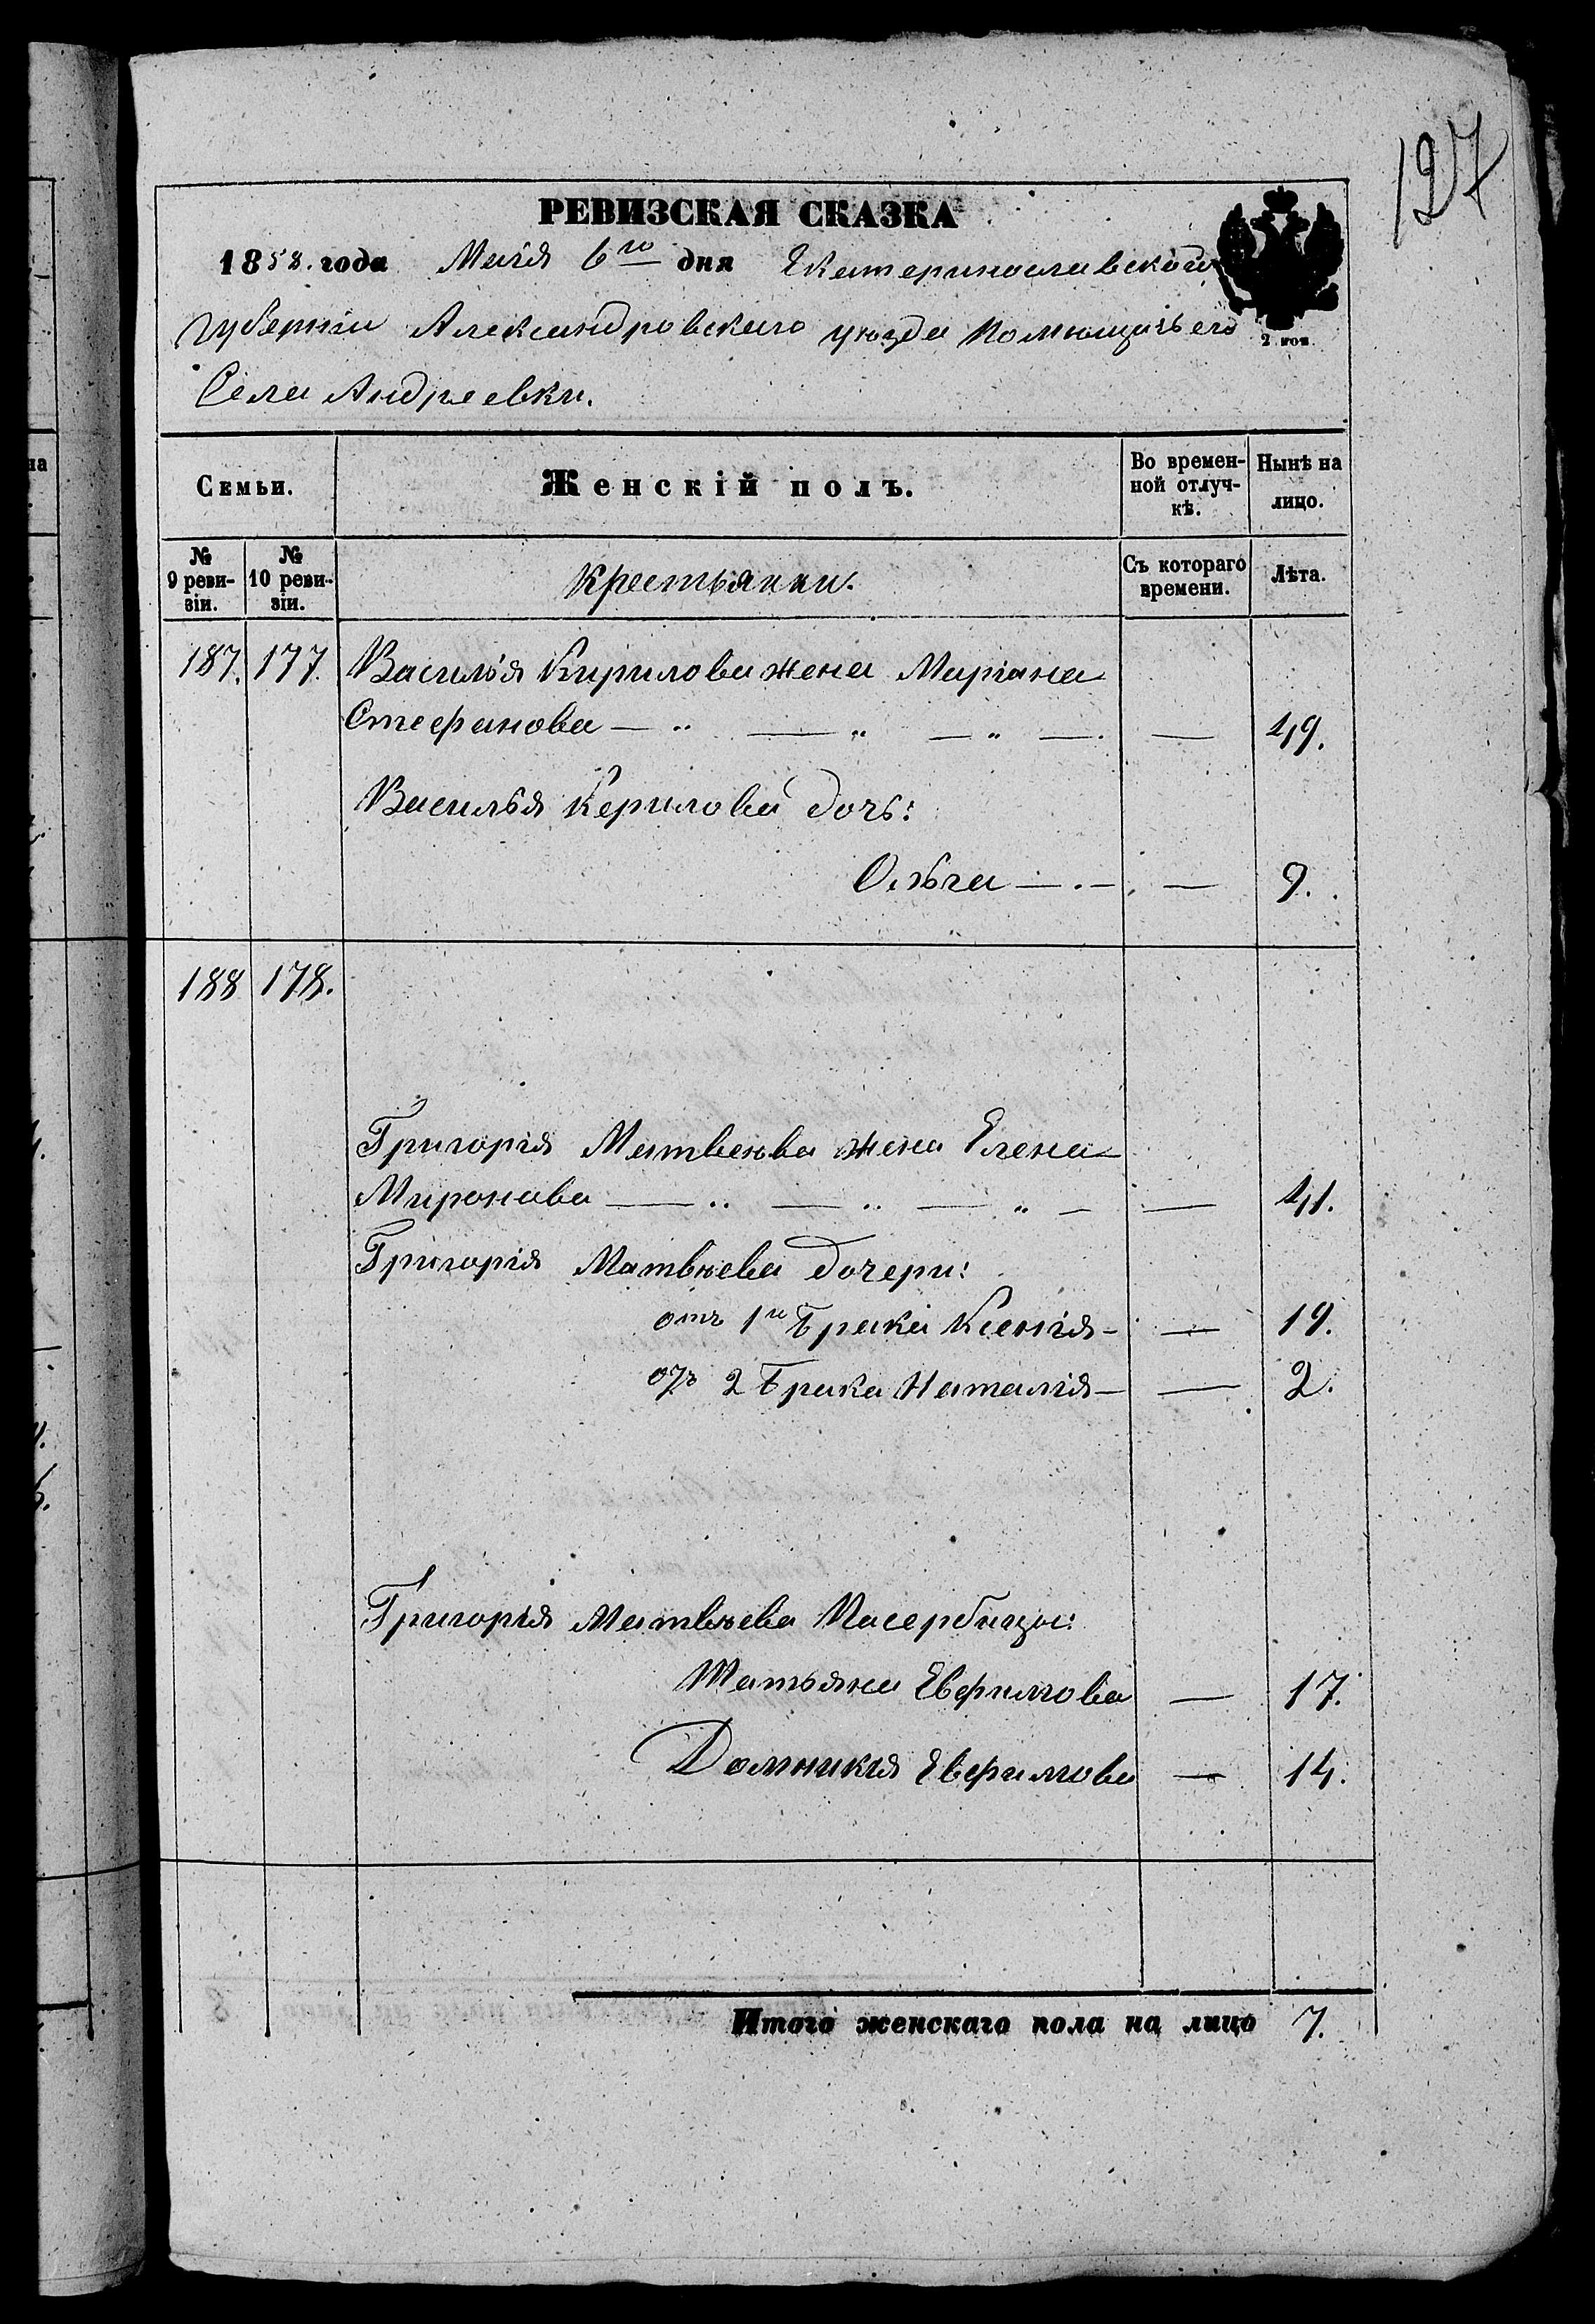 127
РЕВИЗСКАЯ СКАЗКА
1858. года Маія 6го дня Екатеринославской
2 коп.
губерніи Александровскаго уѣзда Помѣщичьего
Села Андреевки.
Семьи. Женскій полъ. Во времен-ной отлуч-кѣ. Нынѣ на лицо.
№ 9 реви-зіи. № 10 реви-зіи. Крестьянки. Съ котораго времени. Лѣта.
187. 177. Василья Кирилова жена Маріана
Стефанова — „ — „ — „ — — 49.
Василья Керилова дочь:
Ольга — . — — 9.
188 178.
Григорія Матвеѣва жена Елена
Миронава — „ — „ — „ — — 41.
Григорія Матвѣева дочери:
отъ 1го Брака Ксенія — — 19.
отъ 2 Брака Наталія — — 2.
Григорія Матвѣева Пасербицы:
Татьяна Евфимова — 17.
Домникія Евфимова — 14.
Итого женскаго пола на лицо 7.